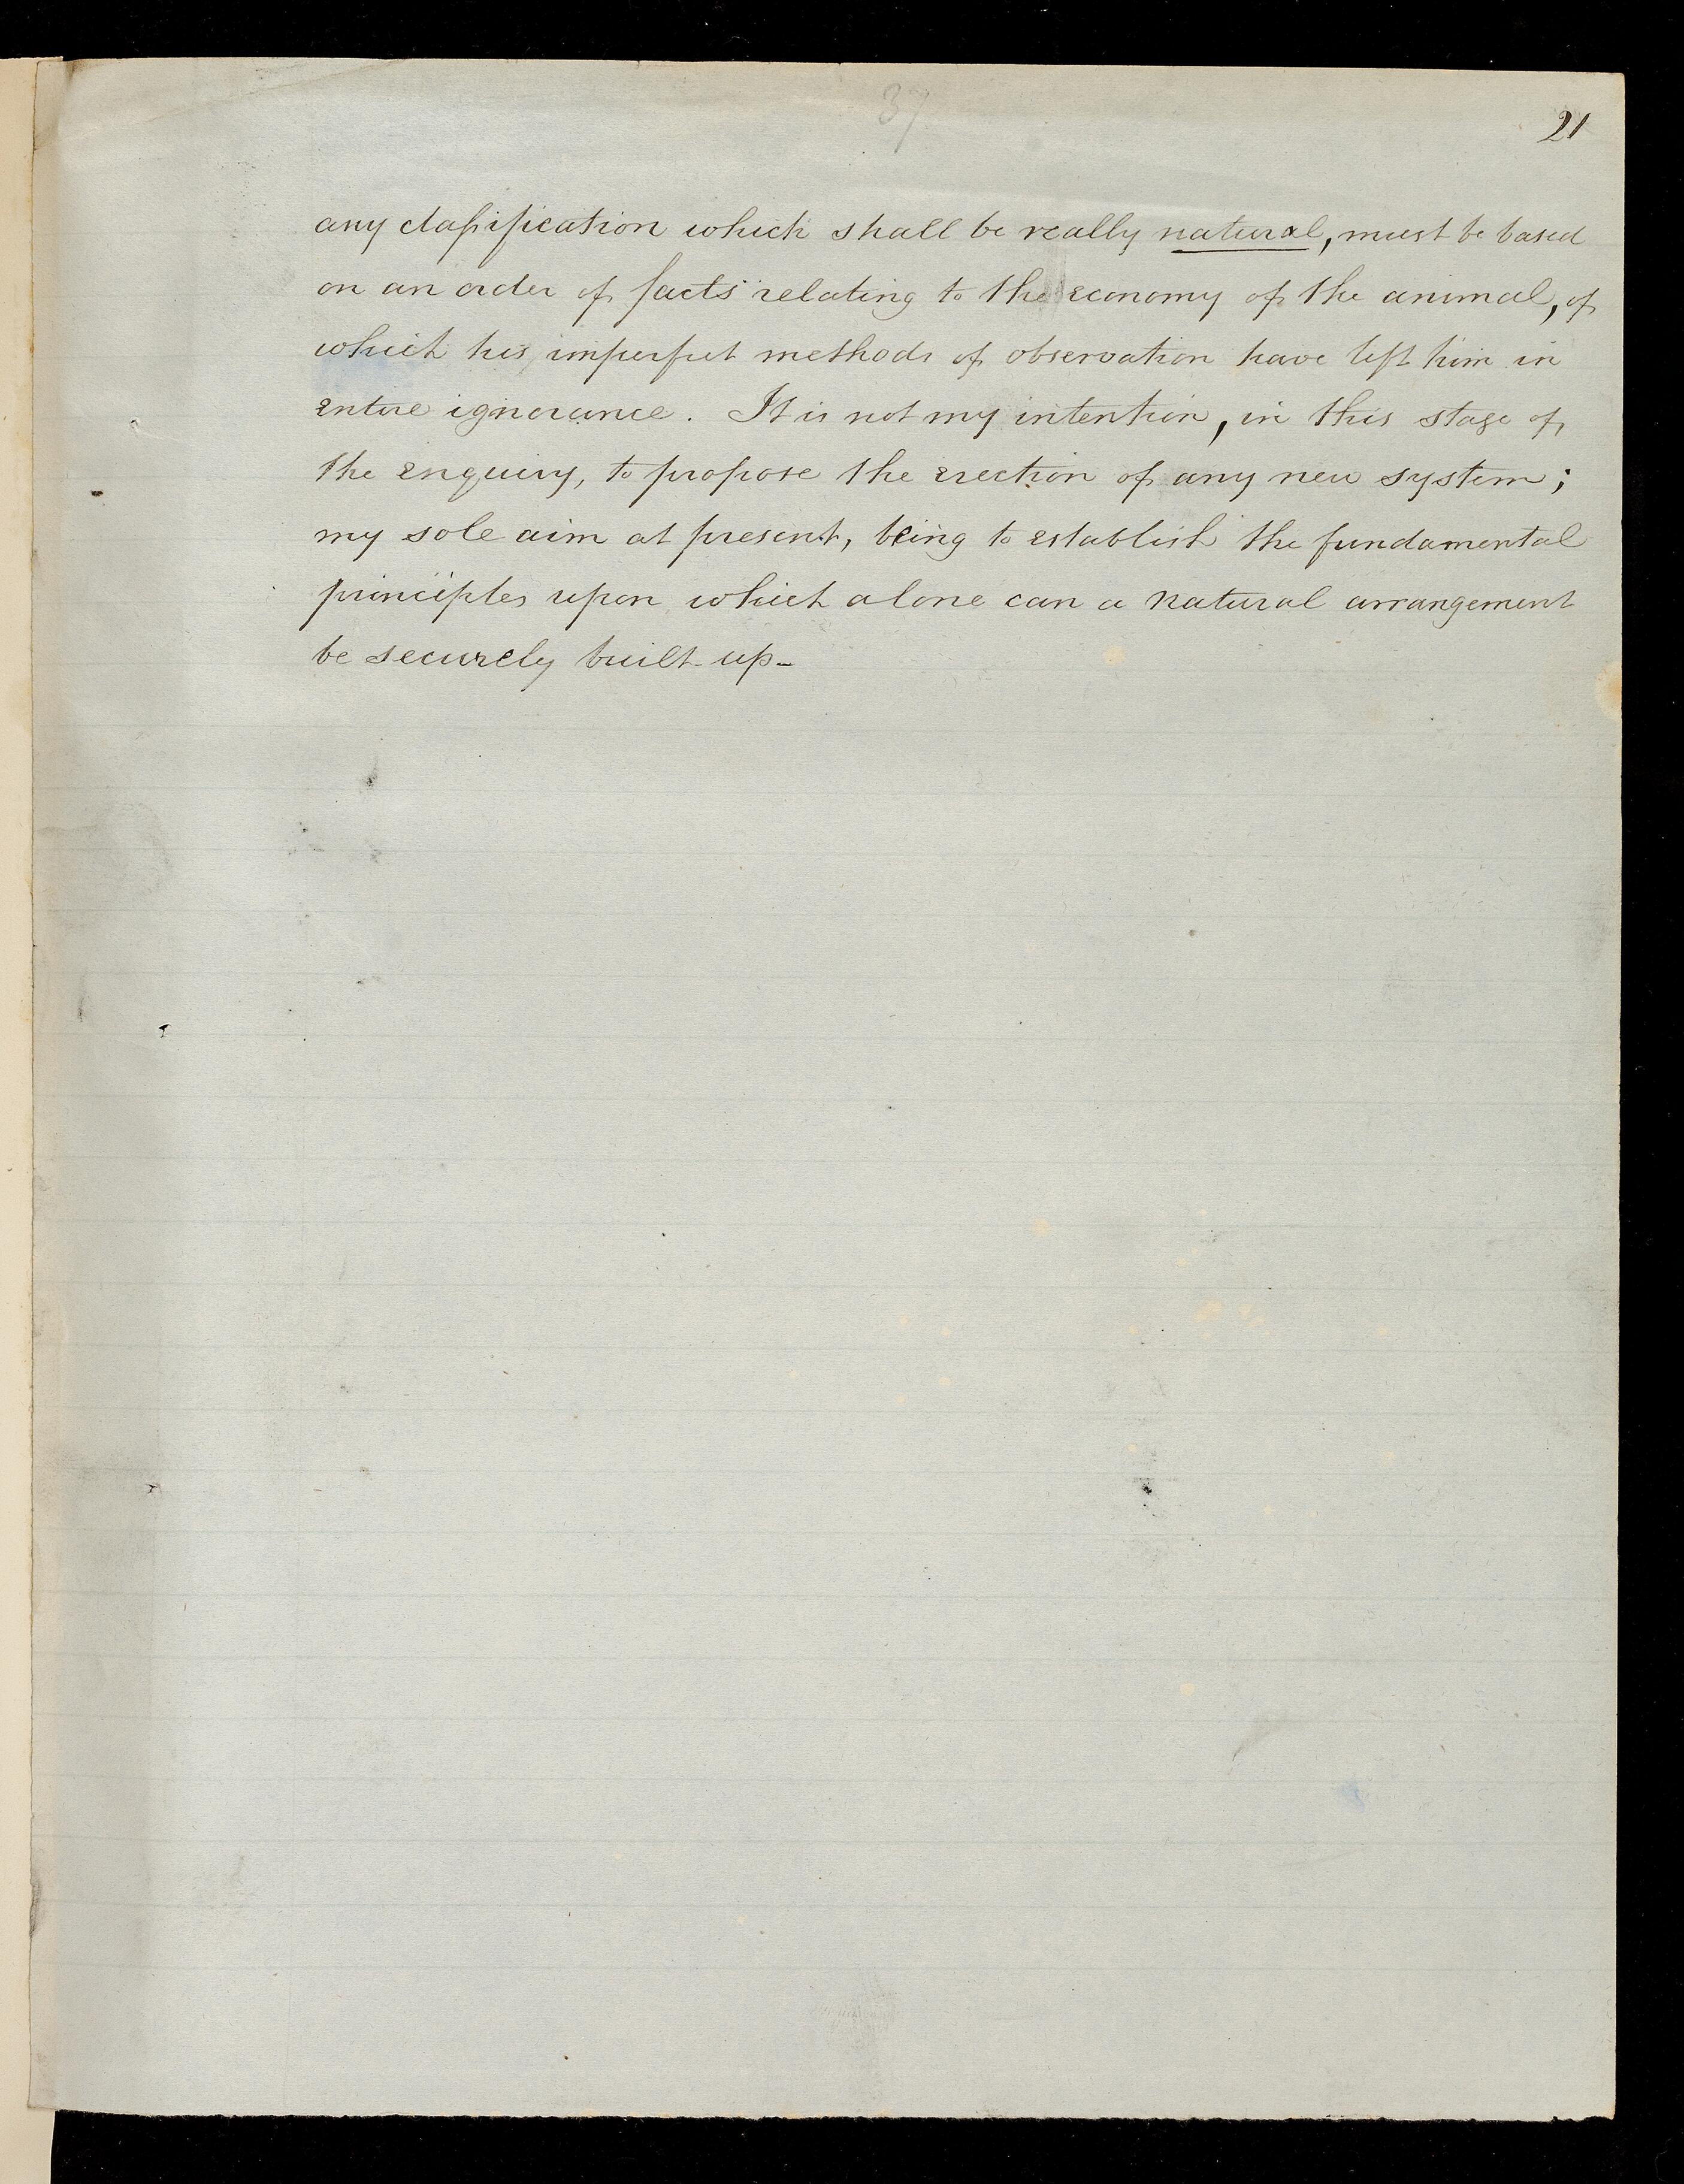 37
21
any claſsification which shall be really natural, must be based
on an order of facts relating to the economy of the animal, of
which his imperfect methods of observation have left him in
entire ignorance. It is not my intention, in this stage of
the enquiry, to propose the erection of any new system;
my sole aim at present, being to establish the fundamental
principles upon which alone can a natural arrangement
be securely built up–